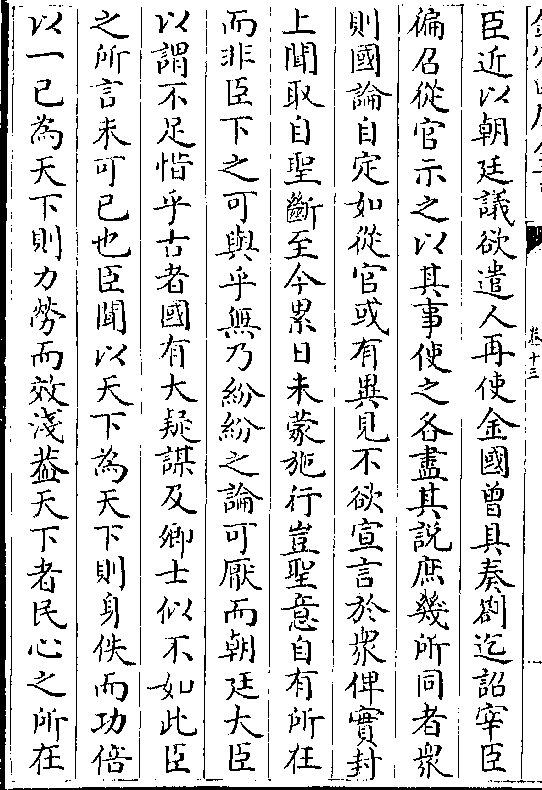 臣近以朝廷議欲遣人再使金國曾具奏劄迄詔宰臣
徧召從官示之以其事使之各盡其説庶幾所同者衆
則國論自定如從官或有異見不欲宣言於衆俾實封
上聞取自聖斷至今累日未蒙施行豈聖意自有所在
而非臣下之可與乎無乃紛紛之論可厭而朝廷大臣
以謂不足惜乎古者國有大疑謀及卿士似不如此臣
之所言未可已也臣聞以天下為天下則身佚而功倍
以一已為天下則力勞而效淺葢天下者民心之所在
卷十三